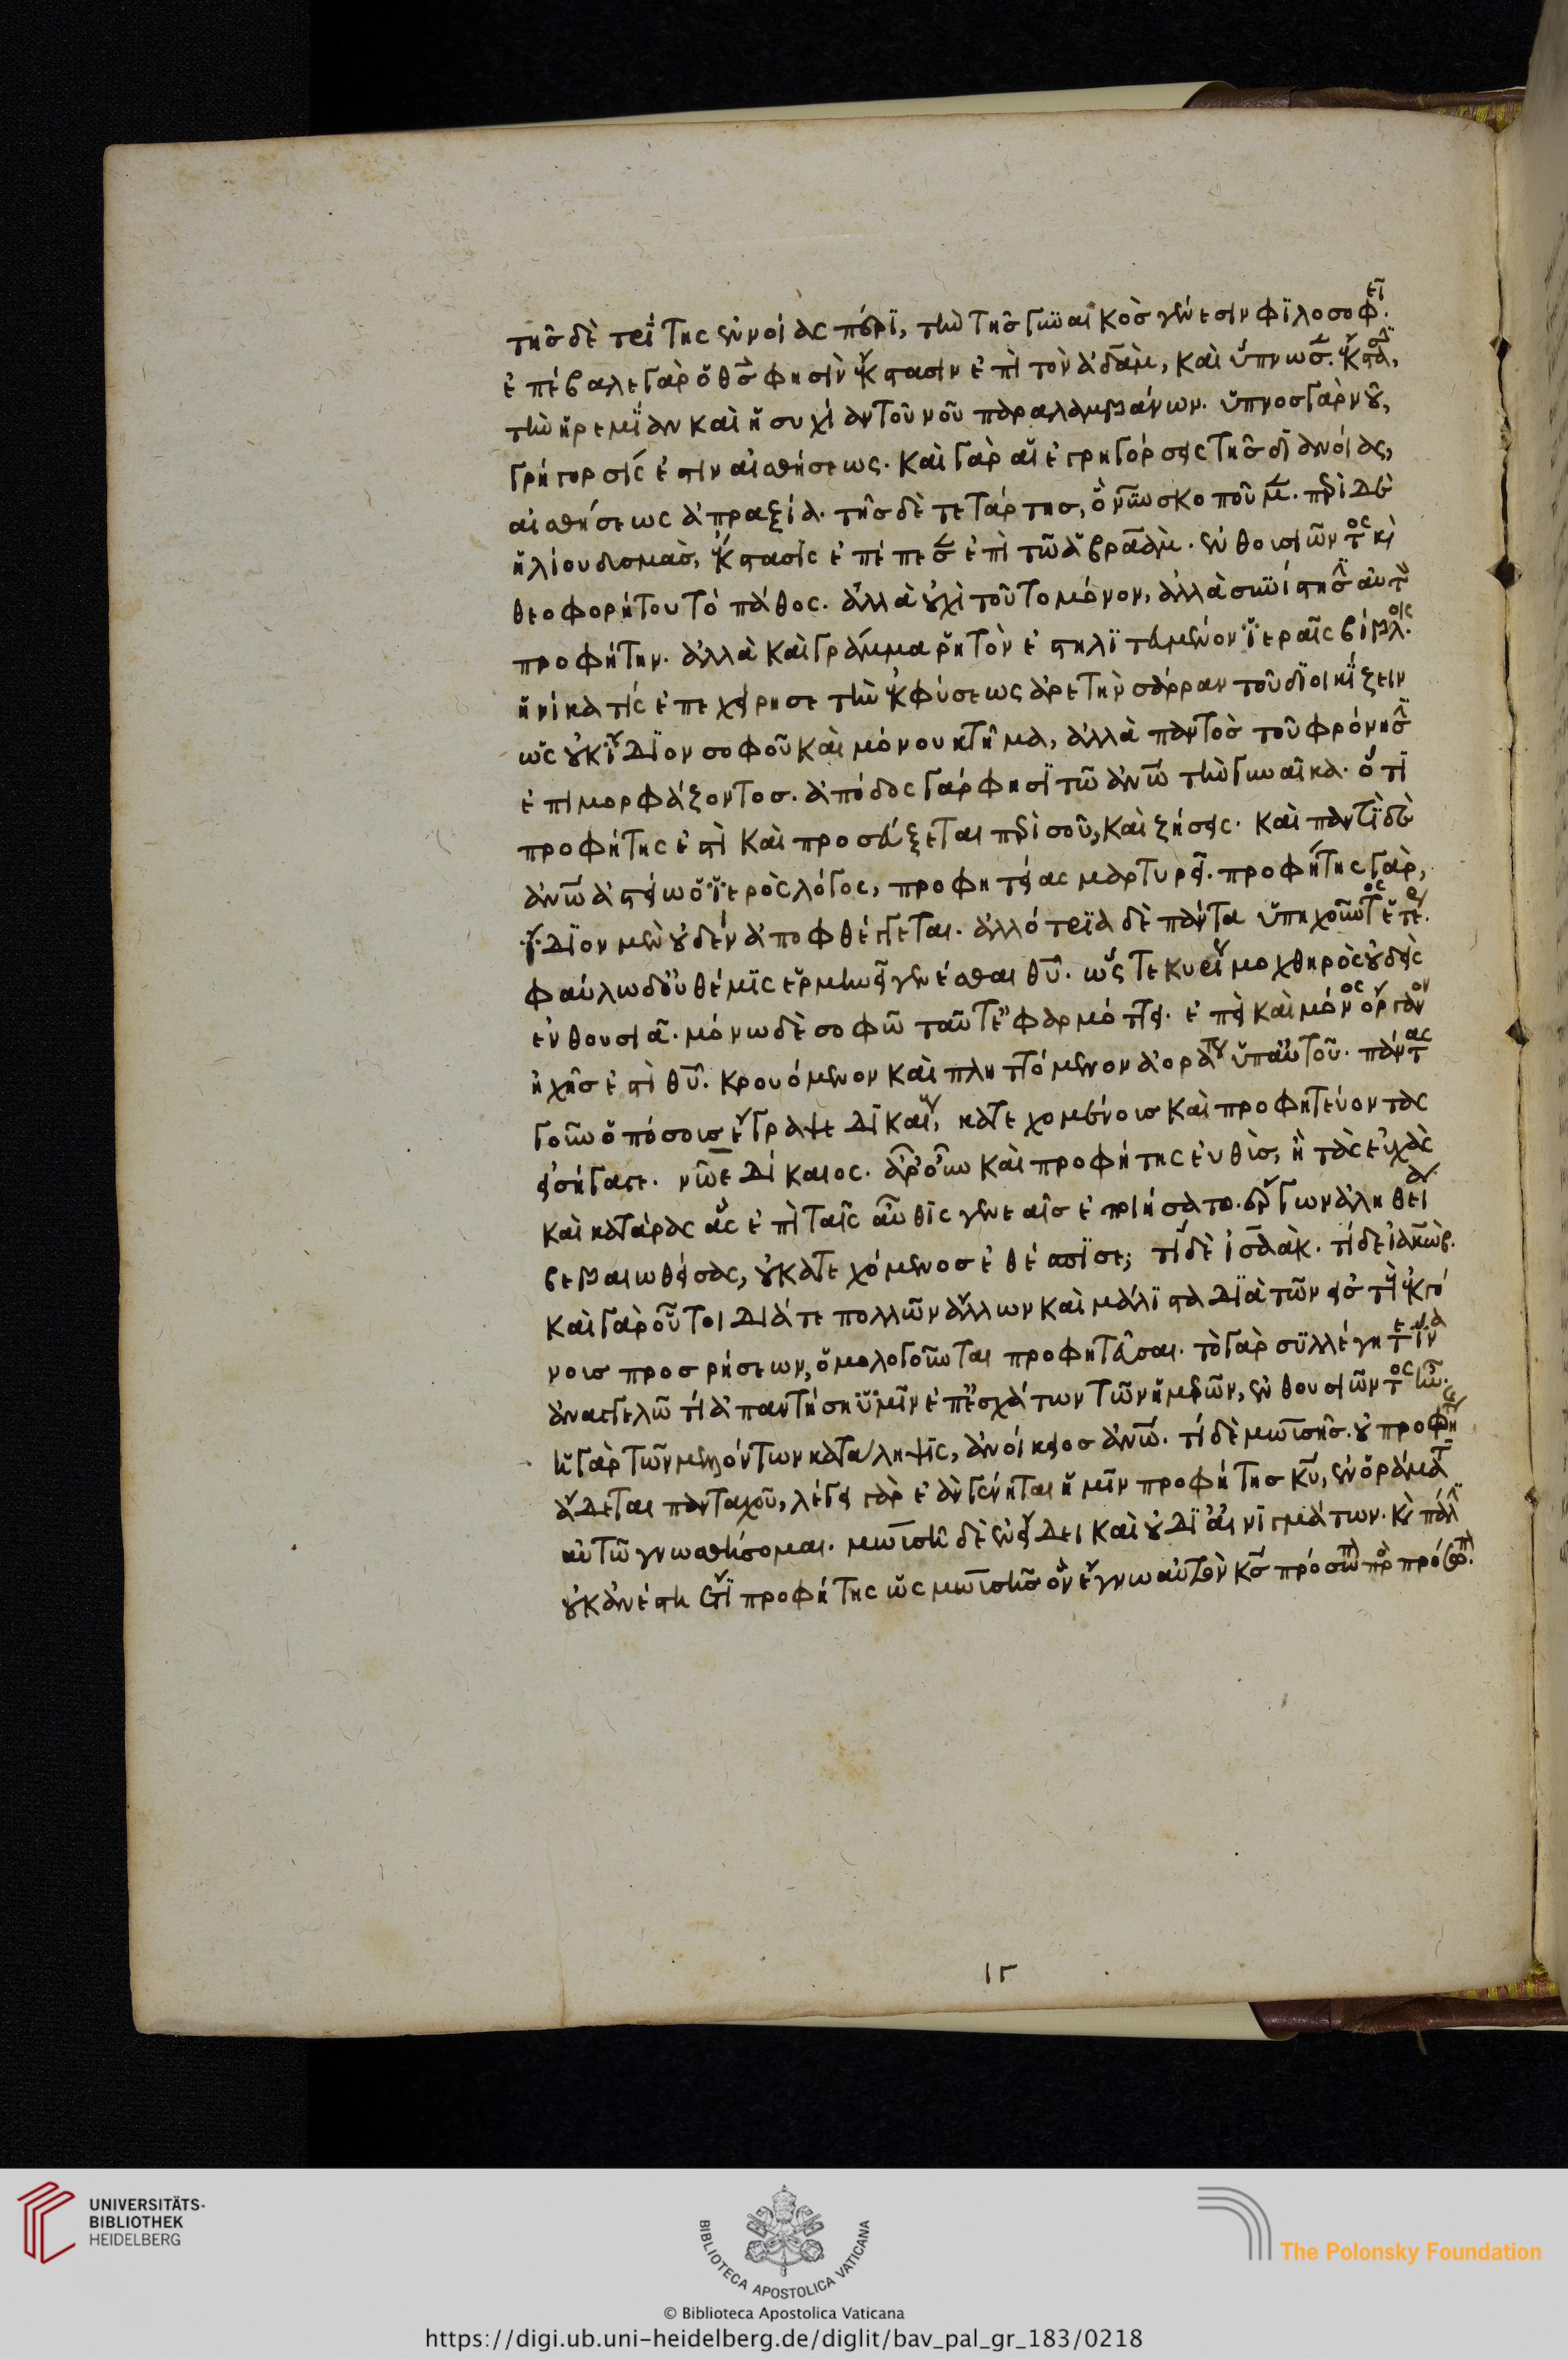 τῆς δὲ τρίτης ἐννοίας πέρϊ, τὴν τῆς γυναικὸς γένεσιν φϊλοσοφεῖ.
ἐπέβαλε γὰρ ὁ θς φησὶν ἔκστασιν ἐπὶ τὸν ἀδὰμ, καὶ ὕπνωσε. ἔκστασϊ,
τὴν ἠρεμΐαν καὶ ἡσυχίαν τοῦ νοῦ παραλαμβάνων. ὕπνος γὰρ νοῦ,
γρήγορσίς ἐστιν αἰσθήσεως. καὶ γὰρ αὖ ἐγρηγόρσεις τῆς διανοίας,
αἰσθήσεως ἀπραξία. τῆς δὲ τετάρτης, ὃ νῦν σκοποῦμεν. περὶ δὲ
ἡλίου δυσμὰς, ἔκστασις ἐπέπεσεν ἐπὶ τῷ ἀβραὰμ. ἐνθουσιῶντος καὶ
θεοφορήτου τὸ πάθος. ἀλλὰ οὐχὶ τοῦτο μόνον, ἀλλὰ συνίστησϊ αὐτὸν
προφήτην. ἀλλὰ καὶ γράμμα ῥητὸν ἐστηλϊτευμένον ἱεραῖς βίβλοις.
ἡνίκα τίς ἐπεχείρησε τὴν ἐκ φύσεως ἀρετὴν σάρραν τοῦ διοικΐζειν
ὡς οὐκ ἴδϊον σοφοῦ καὶ μόνου κτῆμα, ἀλλὰ παντὸς τοῦ φρόνησϊν
ἐπιμορφάζοντος. ἀπόδος γάρ φησϊ τῶ ανω τὴν γυναῖκα. ὅτϊ
προφήτης ἐστὶ καὶ προσεύξεται περὶ σοῦ, καὶ ζήσεις. καὶ παντὶ δὲ
ανω ἀστείω ὁ ἱερὸς λόγος, προφητείας μαρτυρεῖ. προφήτης γὰρ,
ἴδϊον μὲν οὐδὲν ἀποφθέγγεται. ἀλλότρϊα δὲ πάντα ὑπηχοῦντος ἑτέρου.
φαύλω δ' οὐ θέμϊς ἑρμηνεῖ γενέσθαι θυ. ὥς τε κυρίου μοχθηρὸς οὐδεὶς
ἐνθουσιᾶ. μόνω δὲ σοφῶ ταῦτ' ἐφαρμόττει. ἐπεὶ καὶ μόνος ὄργανον
ἠχῆς ἐστὶ θυ. κρουόμενον καὶ πληττόμενον ἀοράτου ὑπ' αὐτοῦ. πάντας
γοῦν ὁπόσους ἔγραψε δικαίου, κατεχομένους καὶ προφητεύοντας
εἰσήγαγε. νῶε δίκαιος. ἆρ' οὖν καὶ προφήτης εὐθὺς, ἢ τὰς εὐχὰς
καὶ κατάρας ἃς ἐπὶ ταῖς αὖθις γενεαῖς ἐποιήσατο. ἔργων ἀληθεία
βεβαιωθείσας, οὐ κατεχόμενος ἐθέσπϊσε; τί δὲ ἰσαὰκ. τί δὲ ἰακὼβ.
καὶ γὰρ οὗτοι διά τε πολλῶν ἄλλων καὶ μάλϊστα δϊὰ τῶν εἰς τοὺς ἐκγό
νους προσρήσεων, ὁμολογοῦνται προφητεῦσαι. τὸ γὰρ συλλέγητε ἵνα
ἀναγγελῶ τί ἀπαντήση ὑμῖν ἐπ' ἐσχάτων τῶν ἡμερῶν, ἐνθουσιῶντος ἦν.
ἡ γὰρ τῶν μενόντων κατάληψϊς, ἀνοίκειος ανω. τί δὲ μωϋσῆς. οὐ προφήτης
ἄδεται πανταχοῦ, λέγει γὰρ ἐὰν γένηται ἡμῖν προφήτης κυ, ἐν ὁράματι
αὐτῶ γνωσθήσομαι. μωϋσῆ δὲ ἐν εἴδει καὶ οὐ δϊ' αἰνιγμάτων. καὶ πάλϊ
οὐκ ἀνέστη ἔτϊ προφήτης ὡς μωϋσῆς ὃν ἔγνω αὐτὸν κς πρόσωπον πρὸς πρόσωπον.
ιγ
UNIVERSITÄTS-
BIBLIOTHEK
HEIDELBERG
BIBLIOTECA APOSTOLICA VATICANA
The Polonsky Foundation
© Biblioteca Apostolica Vaticana
https://digi.ub.uni-heidelberg.de/diglit/bav_pal_gr_183/0218